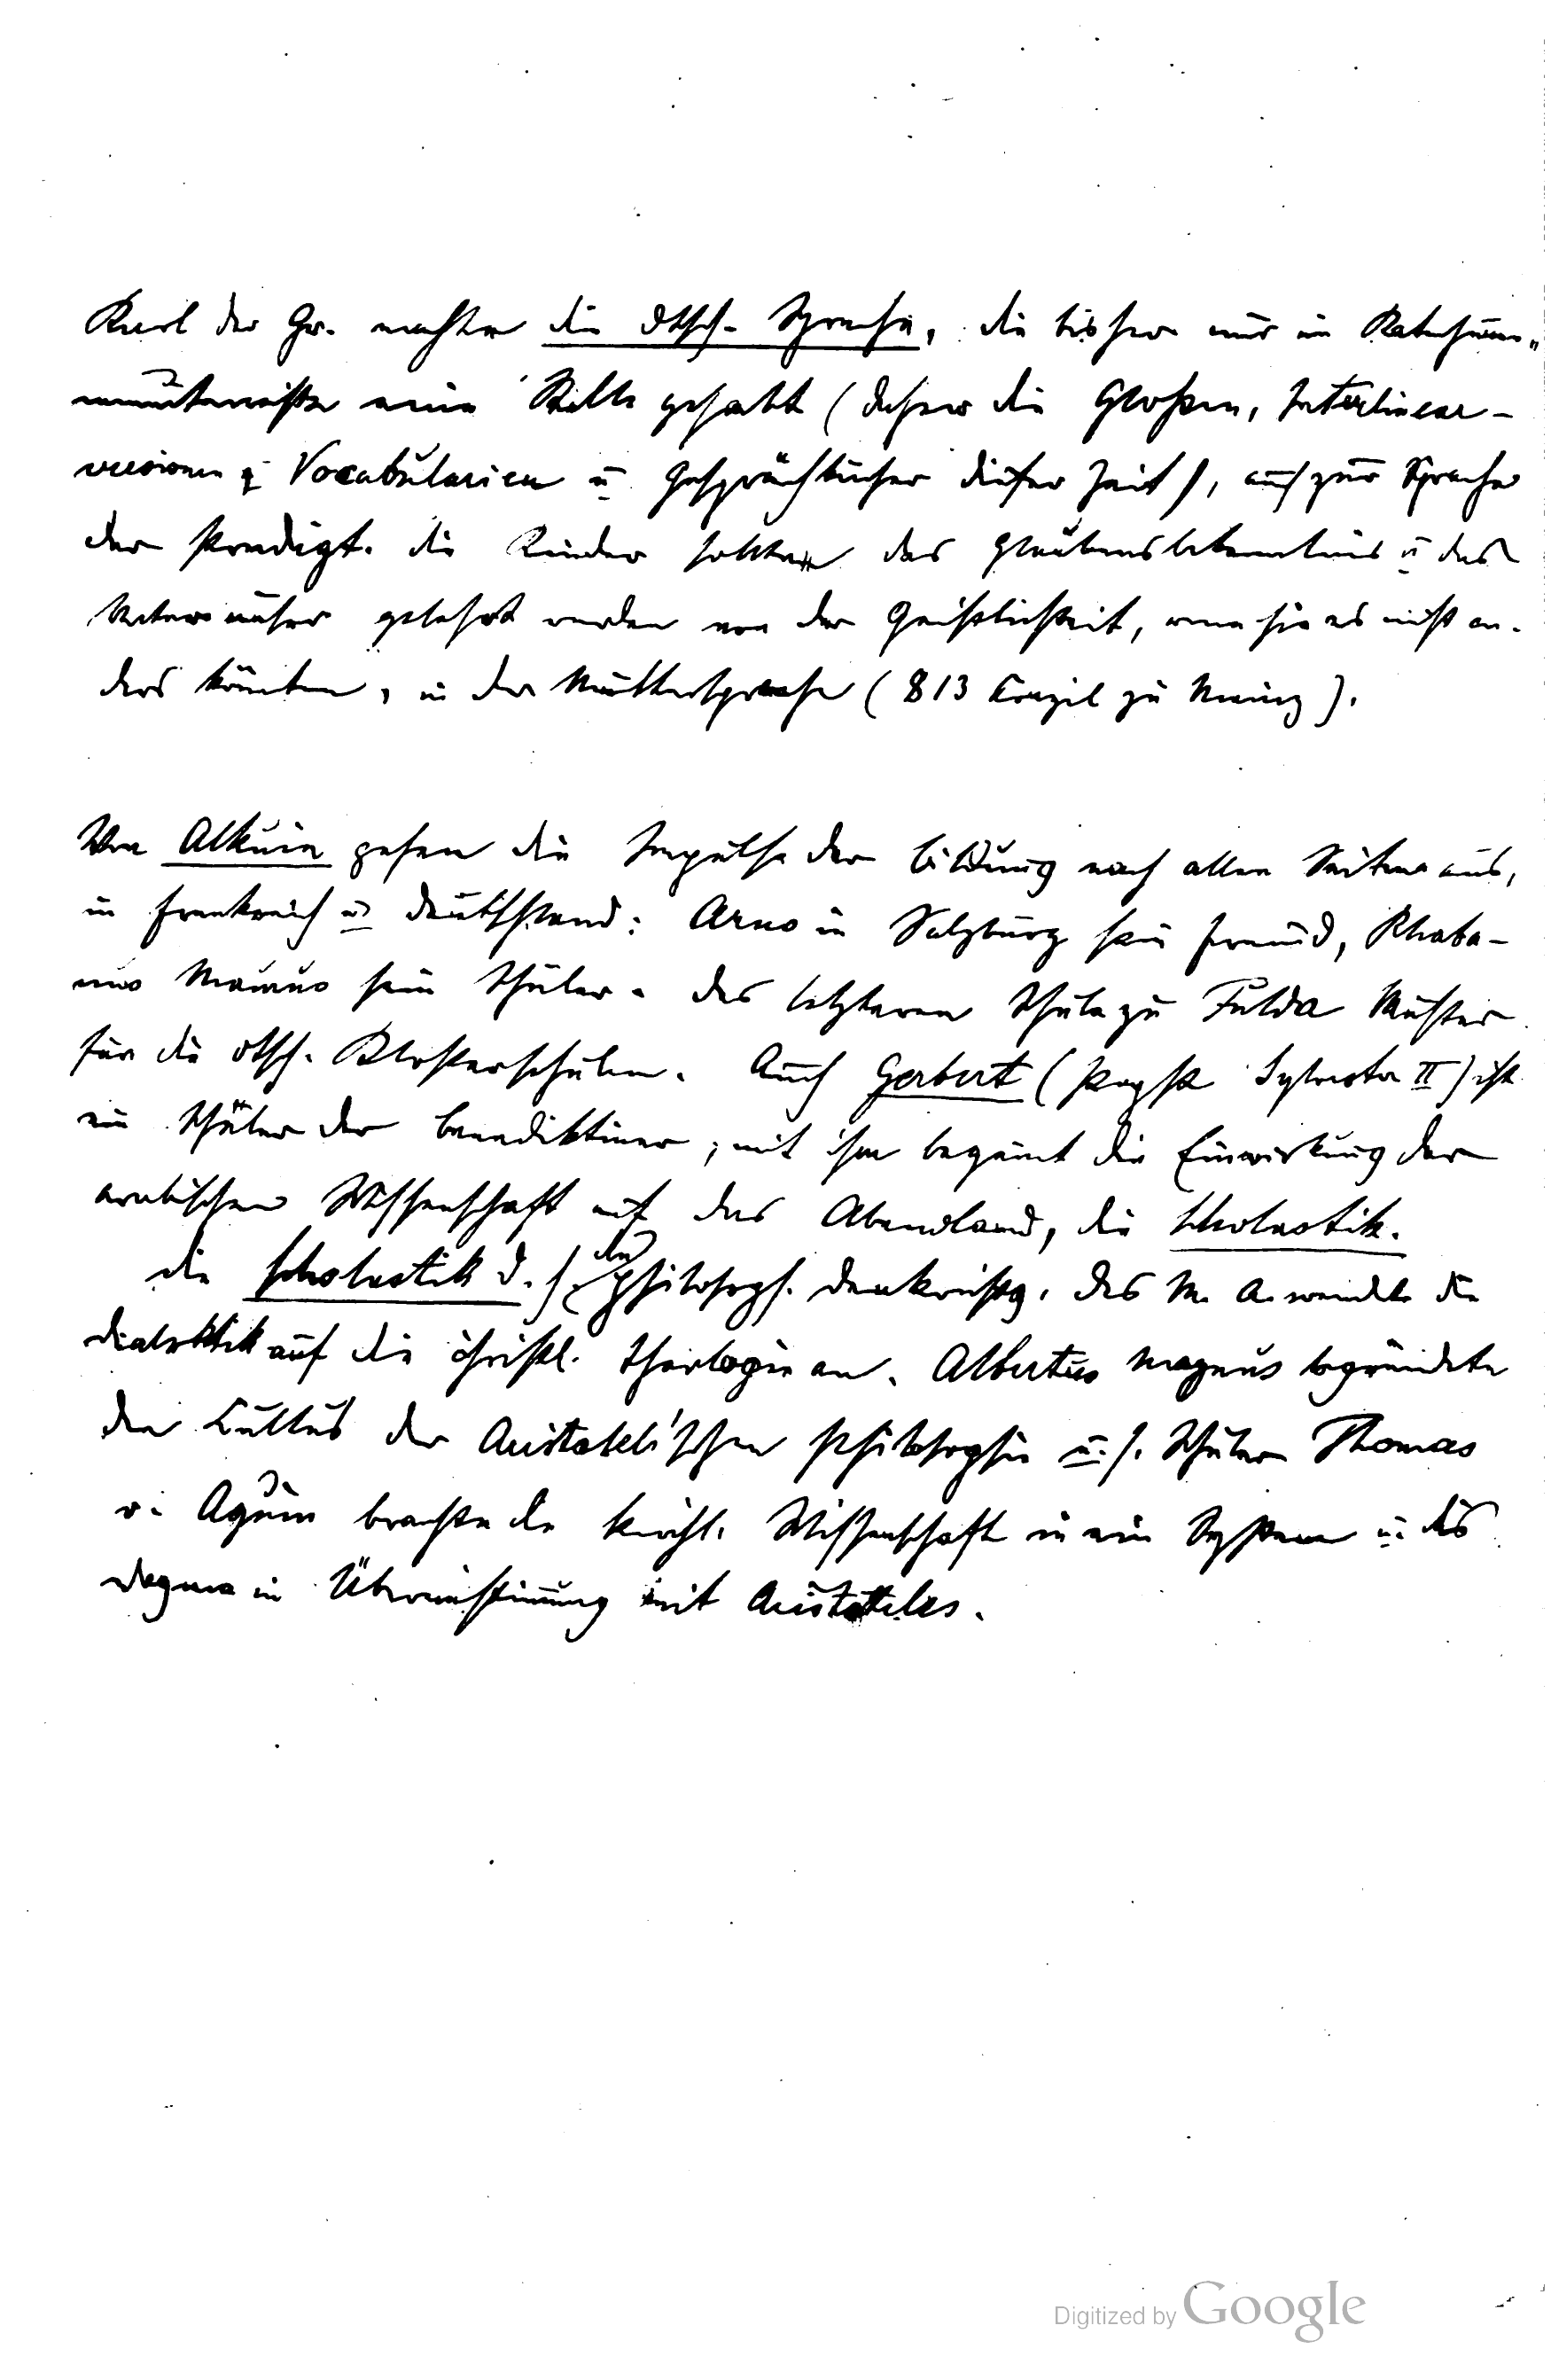 Karl der Gr. machte die dtsch. Sprache, die bisher nur im Katechumen„
unterrichte eine Stelle gehabt (daher die Gloßen, Interlinear-
versionen, Vocabularien u Gesprächbücher dieser Zeit), auch zur Sprache
der Predigt. die Kinder sollten das Glaubensbekenntnis u das
Vater unser gelehrt werden von der Geistlichkeit, wenn sie es nicht an-
ders könnten, in der Muttersprache (813 Conzil zu Mainz).
Von Alkuin gehen die Impulse der Bildung nach allen Seiten aus,
in Frankreich u Deutschland: Arno in Salzburg sein Freund, Rhaba-
nus Maurus sein Schüler. des letzteren Schule zu Fulda Muster
für die dtsch. Klosterschulen. Auch Gerbert (Papst Sylvester II) ist
ein Schüler der Benediktiner, mit ihm beginnt die Einwirkung der
arabischen Wissenschaft auf das Abendland, die Scholastik.
die Scholastik d. h. die philosoph. Denkrichtg. des M. A. wendete die
Dialektik auf die christl. Theologie an. Albertus Magnus begründete
den Cultus der Aristoteli'schen Philosophie u. s. Schüler Thomas
v. Aquin brachte die kirchl. Wissenschaft in ein System u. das
Dogma in Übereinstimmung mit Aristoteles.
Digitized by Google